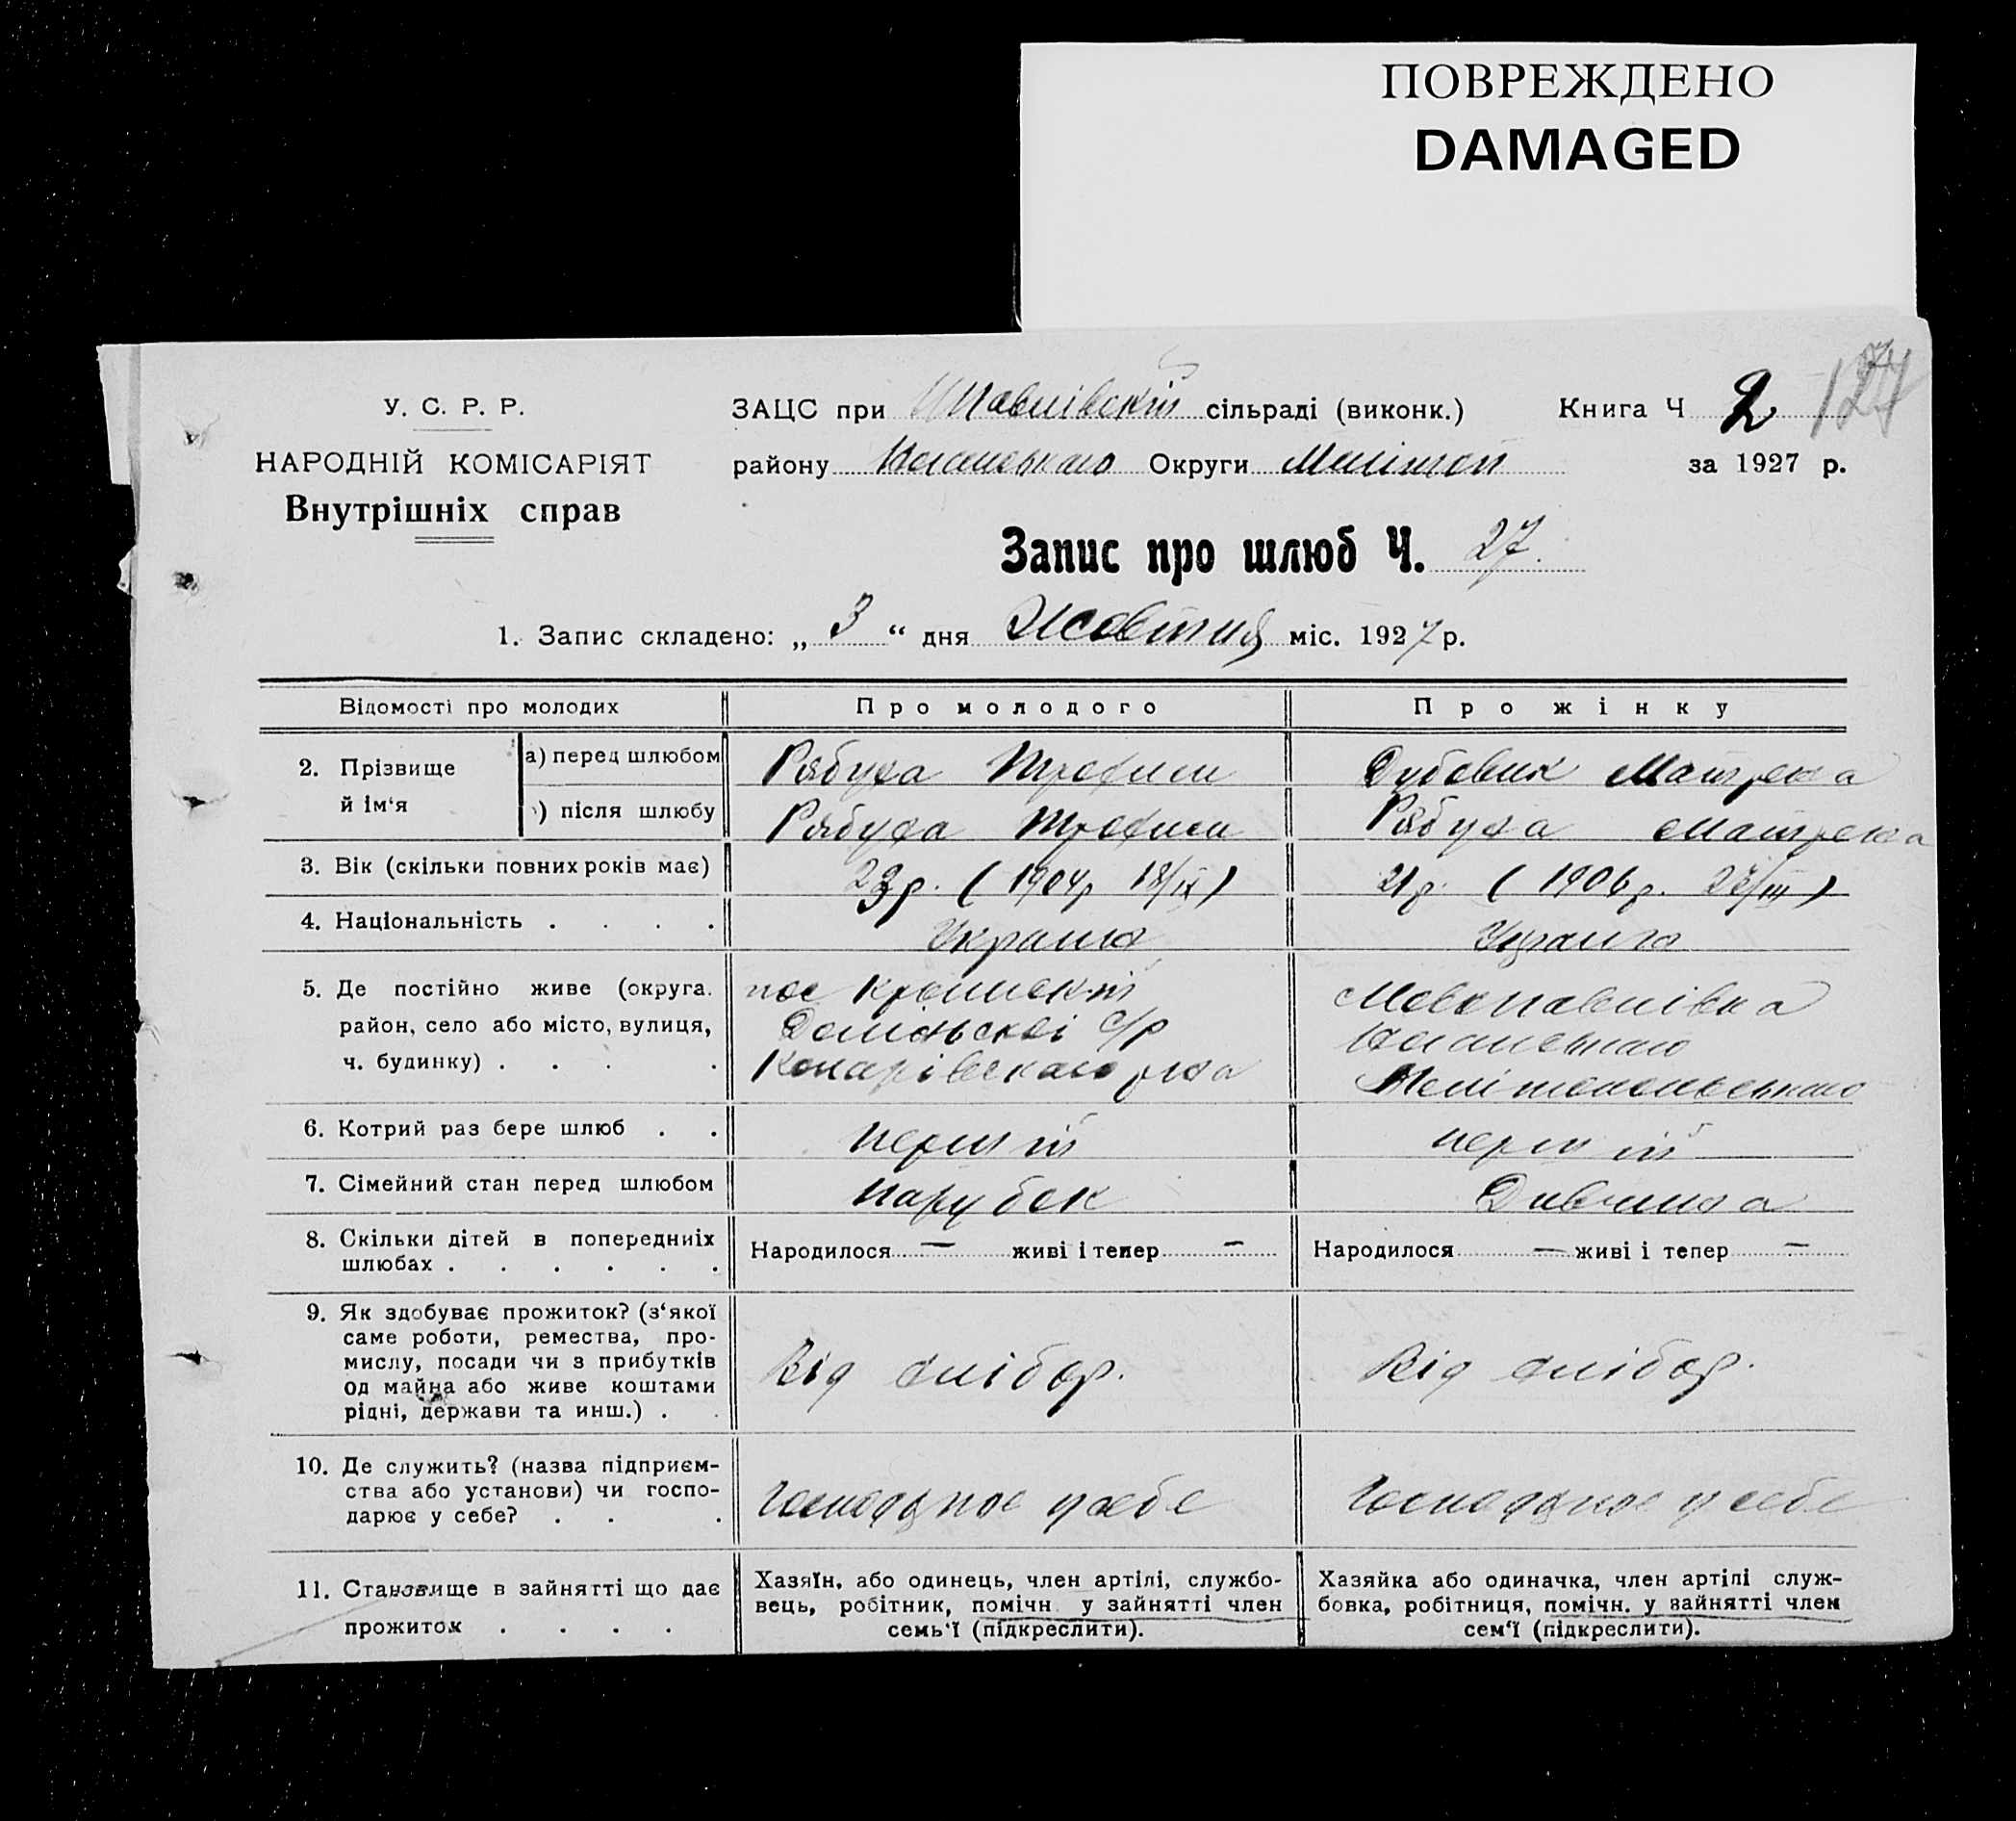 ПОВРЕЖДЕНО
DAMAGED
127
У. С. Р. Р.
НАРОДНІЙ КОМІСАРІЯТ
Внутрішніх справ
ЗАЦС при сільраді (виконк.) Книга Ч 2
району Округи Мелітоп за 1927 р.
Запис про шлюб Ч. 27.
1. Запис складено: „ 3 “ дня Жовтня міс. 1927 р.
Відомості про молодих Про молодого Про жінку
2. Прізвище й ім‘я
а) перед шлюбом Рябуха Трохим Дубовик Мотрона
) після шлюбу Рябуха Трохим Рябуха Мотрона
3. Вік (скільки повних років має) 23 р. (1904р 18/IX) 21 р. (1906 р. 27/III)
4. Національність . . . . Україн Україн
5. Де постійно живе (округа.
район, село або місто, вулиця,
ч. будинку) . . . .
пос
с/р
рна
Мелітопольського
6. Котрий раз бере шлюб . . перший перший
7. Сімейний стан перед шлюбом парубок Дивчина
8. Скільки дітей в попередниіх
шлюбах . . . . . .
Народилося — живі і тепер — Народилося — живі і тепер —
9. Як здобуває прожиток? (з‘якої
саме роботи, ремества, про-
мислу, посади чи з прибутків
од майна або живе коштами
рідні, держави та инш.) . .
Від хлібор. Від хлібор.
10. Де служить? (назва підприєм-
ства або установи) чи госпо-
дарює у себе? . . .
у себе у себе
11. Становище в зайнятті що дає
прожиток . . . .
Хазяїн, або одинець, член артілі, службо-
вець, робітник, помічн. у зайнятті член
семь‘ї (підкреслити).
Хазяйка або одиначка, член артілі служ-
бовка, робітниця, помічн. у зайнятті член
сем‘ї (підкреслити).